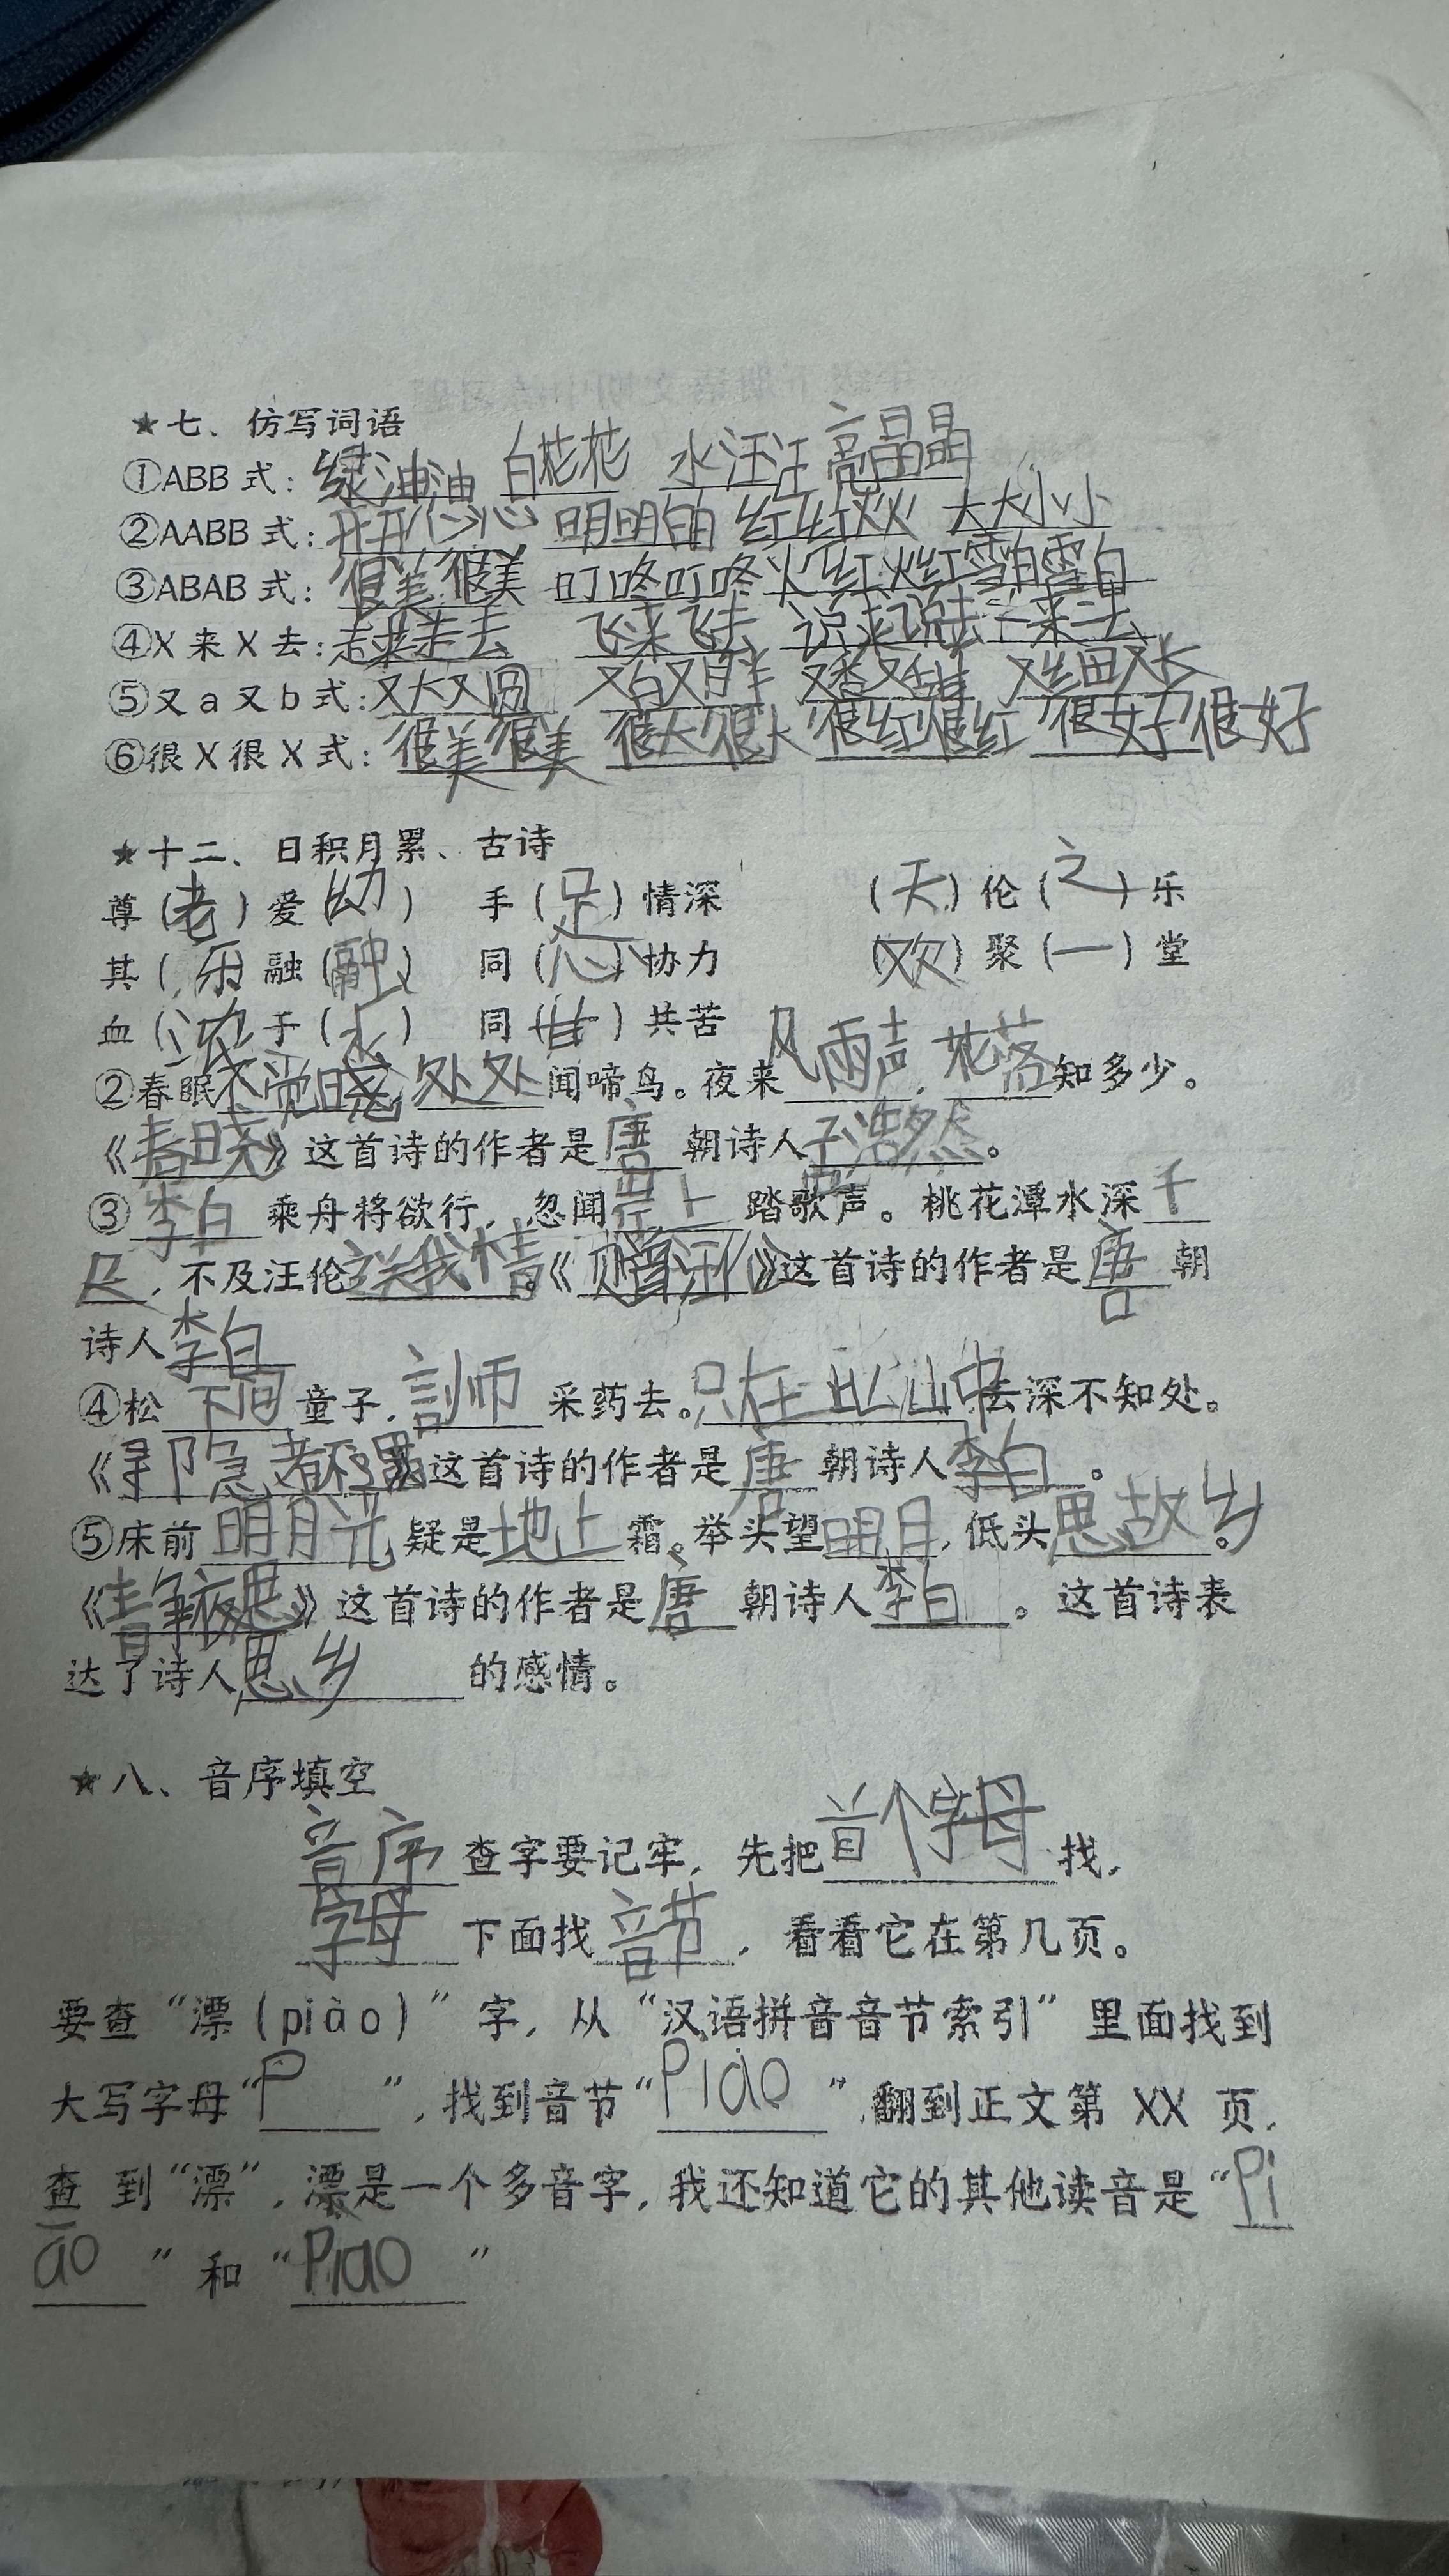 ★七、仿写词语
①ABB 式：绿油油 白花花 水汪汪 亮晶晶
②AABB 式：开开心心 明明白白 红红火火 大大小小
③ABAB 式：很美很美 叮咚叮咚 火红火红 雪白雪白
④X 来 X 去：走来走去 飞来飞去 说来说去 一来一去
⑤又 a 又 b 式：又大又圆 又白又胖 又香又甜 又细又长
⑥很 X 很 X 式：很美很美 很大很大 很红很红 很好很好
★十二、日积月累、古诗
尊（老）爱（幼） 手（足）情深 （天）伦（之）乐
其（乐）融（融） 同（心）协力 （欢）聚（一）堂
血（浓）于（水） 同（甘）共苦
②春眠不觉晓，处处闻啼鸟。夜来风雨声，花落知多少。
《春晓》这首诗的作者是唐朝诗人孟浩然。
③李白乘舟将欲行，忽闻岸上踏歌声。桃花潭水深千
尺，不及汪伦送我情。《赠汪伦》这首诗的作者是唐朝
诗人李白
④松下问童子，言师采药去。只在此山中云深不知处。
《寻隐者不遇》这首诗的作者是唐朝诗人李白。
⑤床前明月光疑是地上霜。举头望明月，低头思故乡。
《静夜思》这首诗的作者是唐朝诗人李白。这首诗表
达了诗人思乡的感情。
★八、音序填空
音序查字要记牢，先把首个字母找，
字母下面找音节，看看它在第几页。
要查“漂（piào）”字，从“汉语拼音音节索引”里面找到
大写字母“P”，找到音节“Piao”，翻到正文第 XX 页，
查到“漂”，漂是一个多音字，我还知道它的其他读音是“Pi
āo”和“Piao”